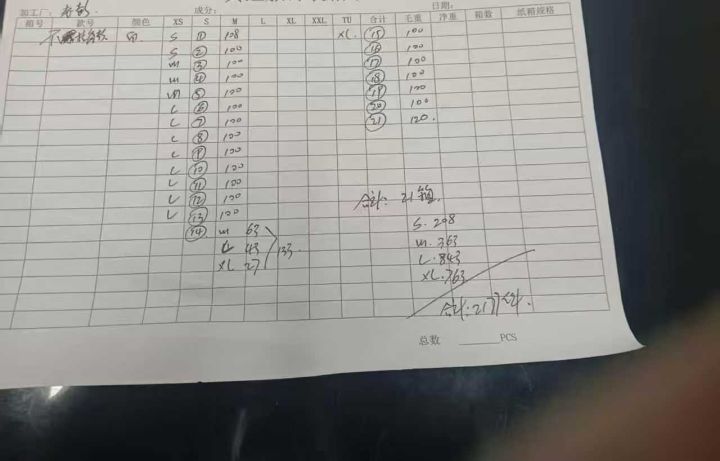 加工厂: 成分: 日期:
箱号 款号 颜色 XS S M L XL XXL TU 合计 毛重 净重 箱数 纸箱规格
S ① 108 XL. ⑮ 100
S ② 100 ⑯ 100
M ③ 100 ⑰ 100
M ④ 100 ⑱ 100
M ⑤ 100 ⑲ 100
L ⑥ 100 ⑳ 100
L ⑦ 100 ㉑ 120.
L ⑧ 100
L ⑨ 100
L ⑩ 100
L ⑪ 100
L ⑫ 100 合计: 21箱.
L ⑬ 100
⑭ M 63 S. 208
L 43 133. M. 363
XL 27 L. 843
XL. 763
合计: 2177件.
总数 ______PCS